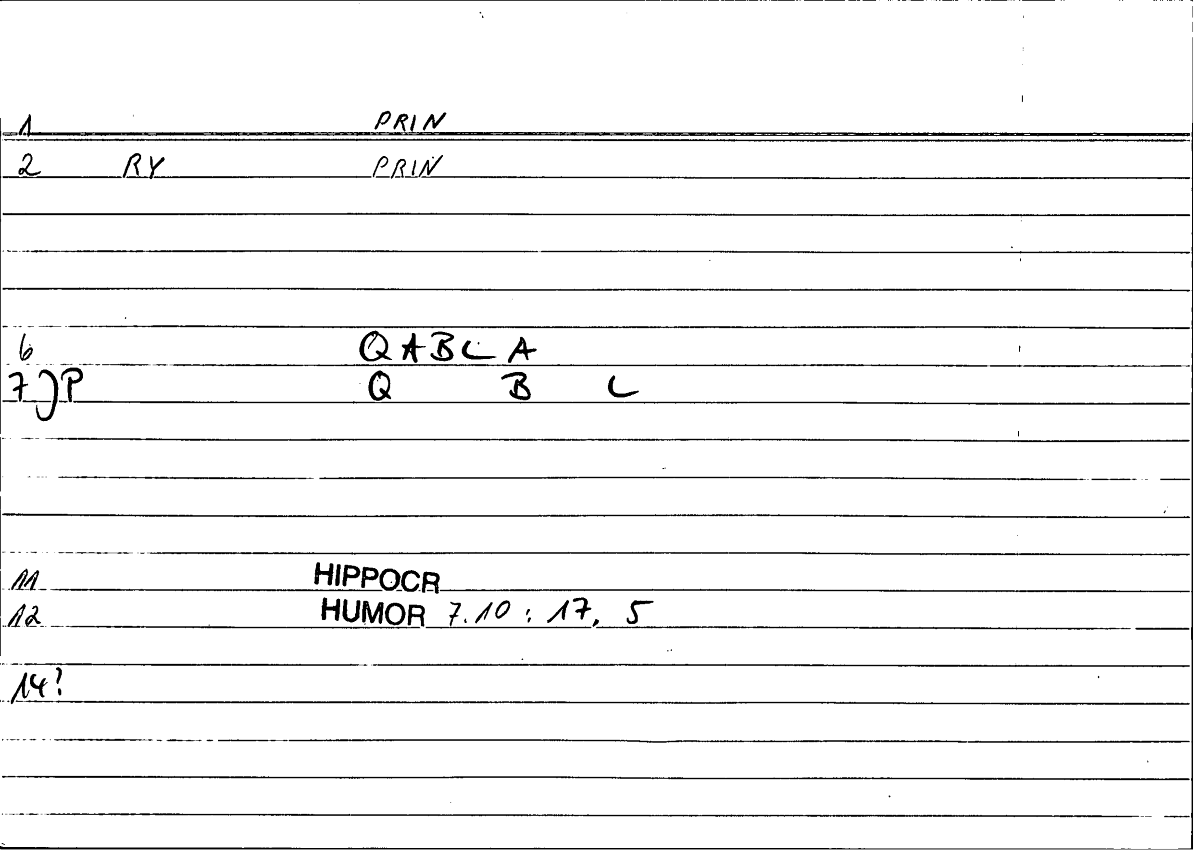 1 PRIN
2 RY PRIN
6 QABC A
7)P Q B C
11 HIPPOCR
12 HUMOR 7.10 : 17, 5
14?